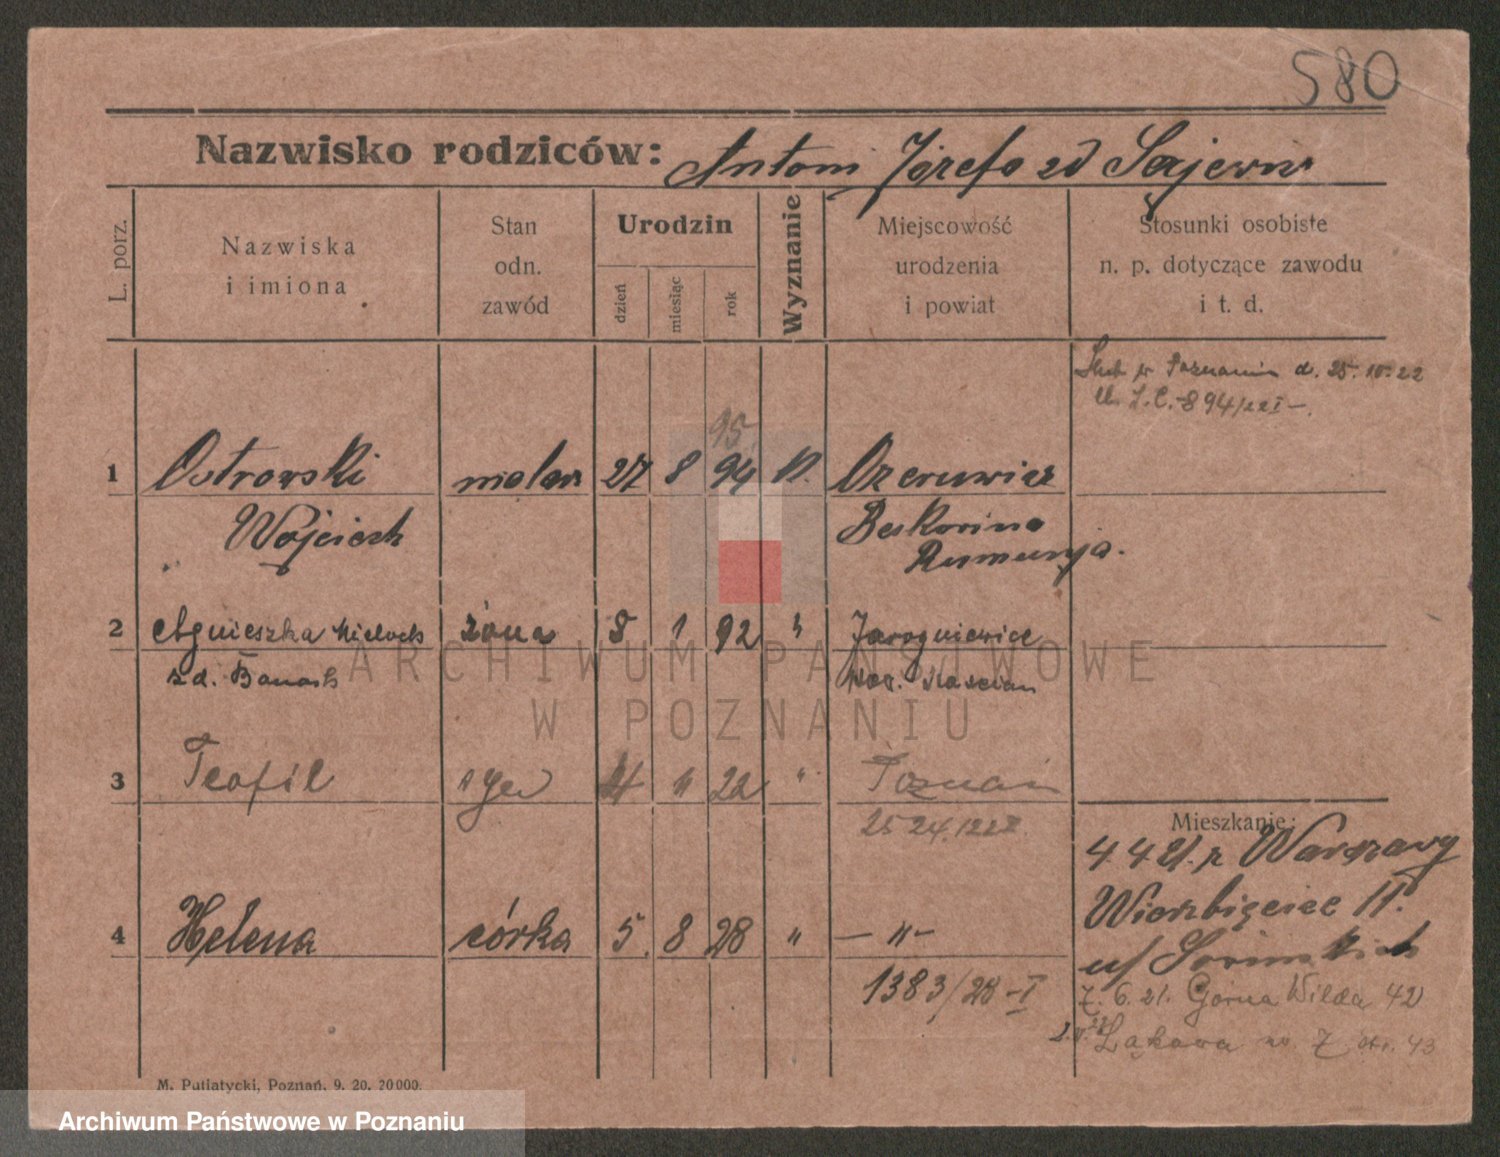 580
Nazwisko rodziców: Antoni Józefa zd
L. porz.
Nazwiska
i imiona
Stan
odn.
zawód
Urodzin
dzień
miesiąc
rok
Wyznanie
Miejscowość
urodzenia
i powiat
Stosunki osobiste
n. p. dotyczące zawodu
i t. d.
w Poznaniu d. 25.10.22
894/22 I
95.
1 Ostrowski malarz 27 8 94 K.
Wojciech
Rumunja.
2 Agnieszka żona 8 1 92 " Jarogniewice
zd. Banash
pow. Kościan
3 Teofil syn 4 11 22 " Poznań
Mieszkanie:
4 4 21. z Warszawy
Wierzbięcice 11.
4 Helena córka 5. 8 28 " — " —
u/
1383/28 – I
7. 6. 21. Górna Wilda 42
Łąkowa no 7 str. 43
M. Putiatycki, Poznań, 9. 20. 20000.
ARCHIWUM PAŃSTWOWE
W POZNANIU
Archiwum Państwowe w Poznaniu